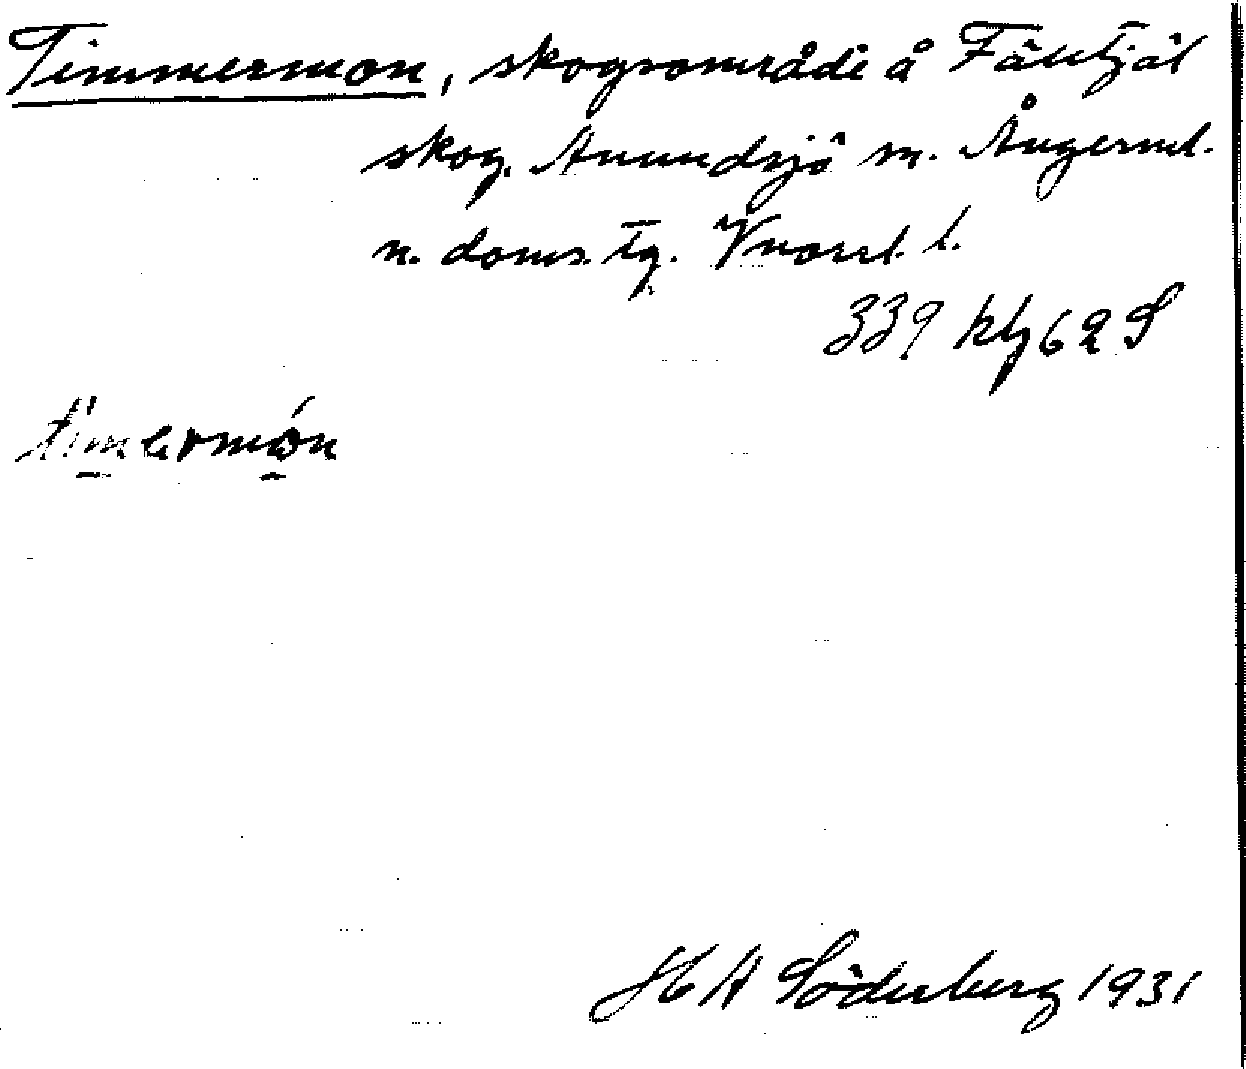 Timmermon, skogsområde å Fälltjäl
skog. Anundsjö sn. Ångerml.
n. doms. tg. Vnorrl. l.
339 klg 62 S
timermón
H A Söderberg 1931